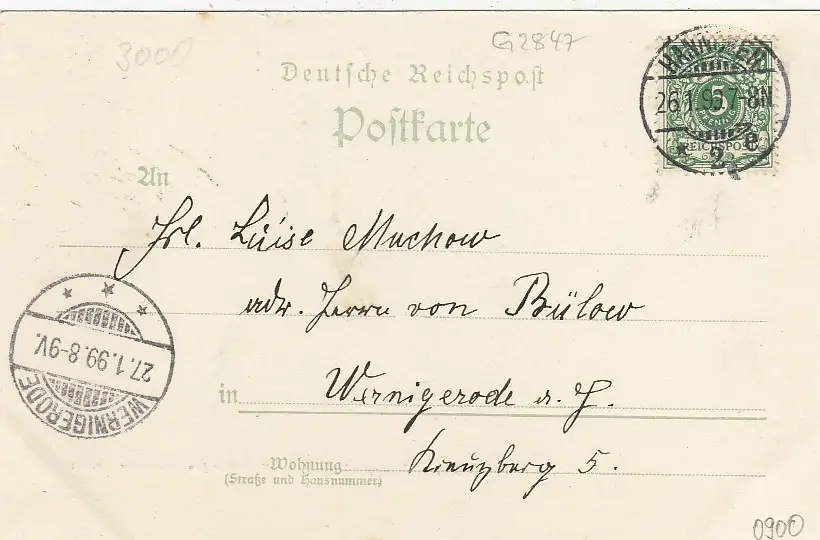 3000
G2847
Deutsche Reichspost
Postkarte
HANNOVER
26.1.99.7-8N
* 2 e
5
PFENNIG
REICHSPOST
An
Frl. Luise Muchow
adr. Herrn von Bülow
in Wernigerode a. H.
Wohnung: Kreuzberg 5.
(Straße und Hausnummer)
27.1.99.8-9V.
WERNIGERODE
0900